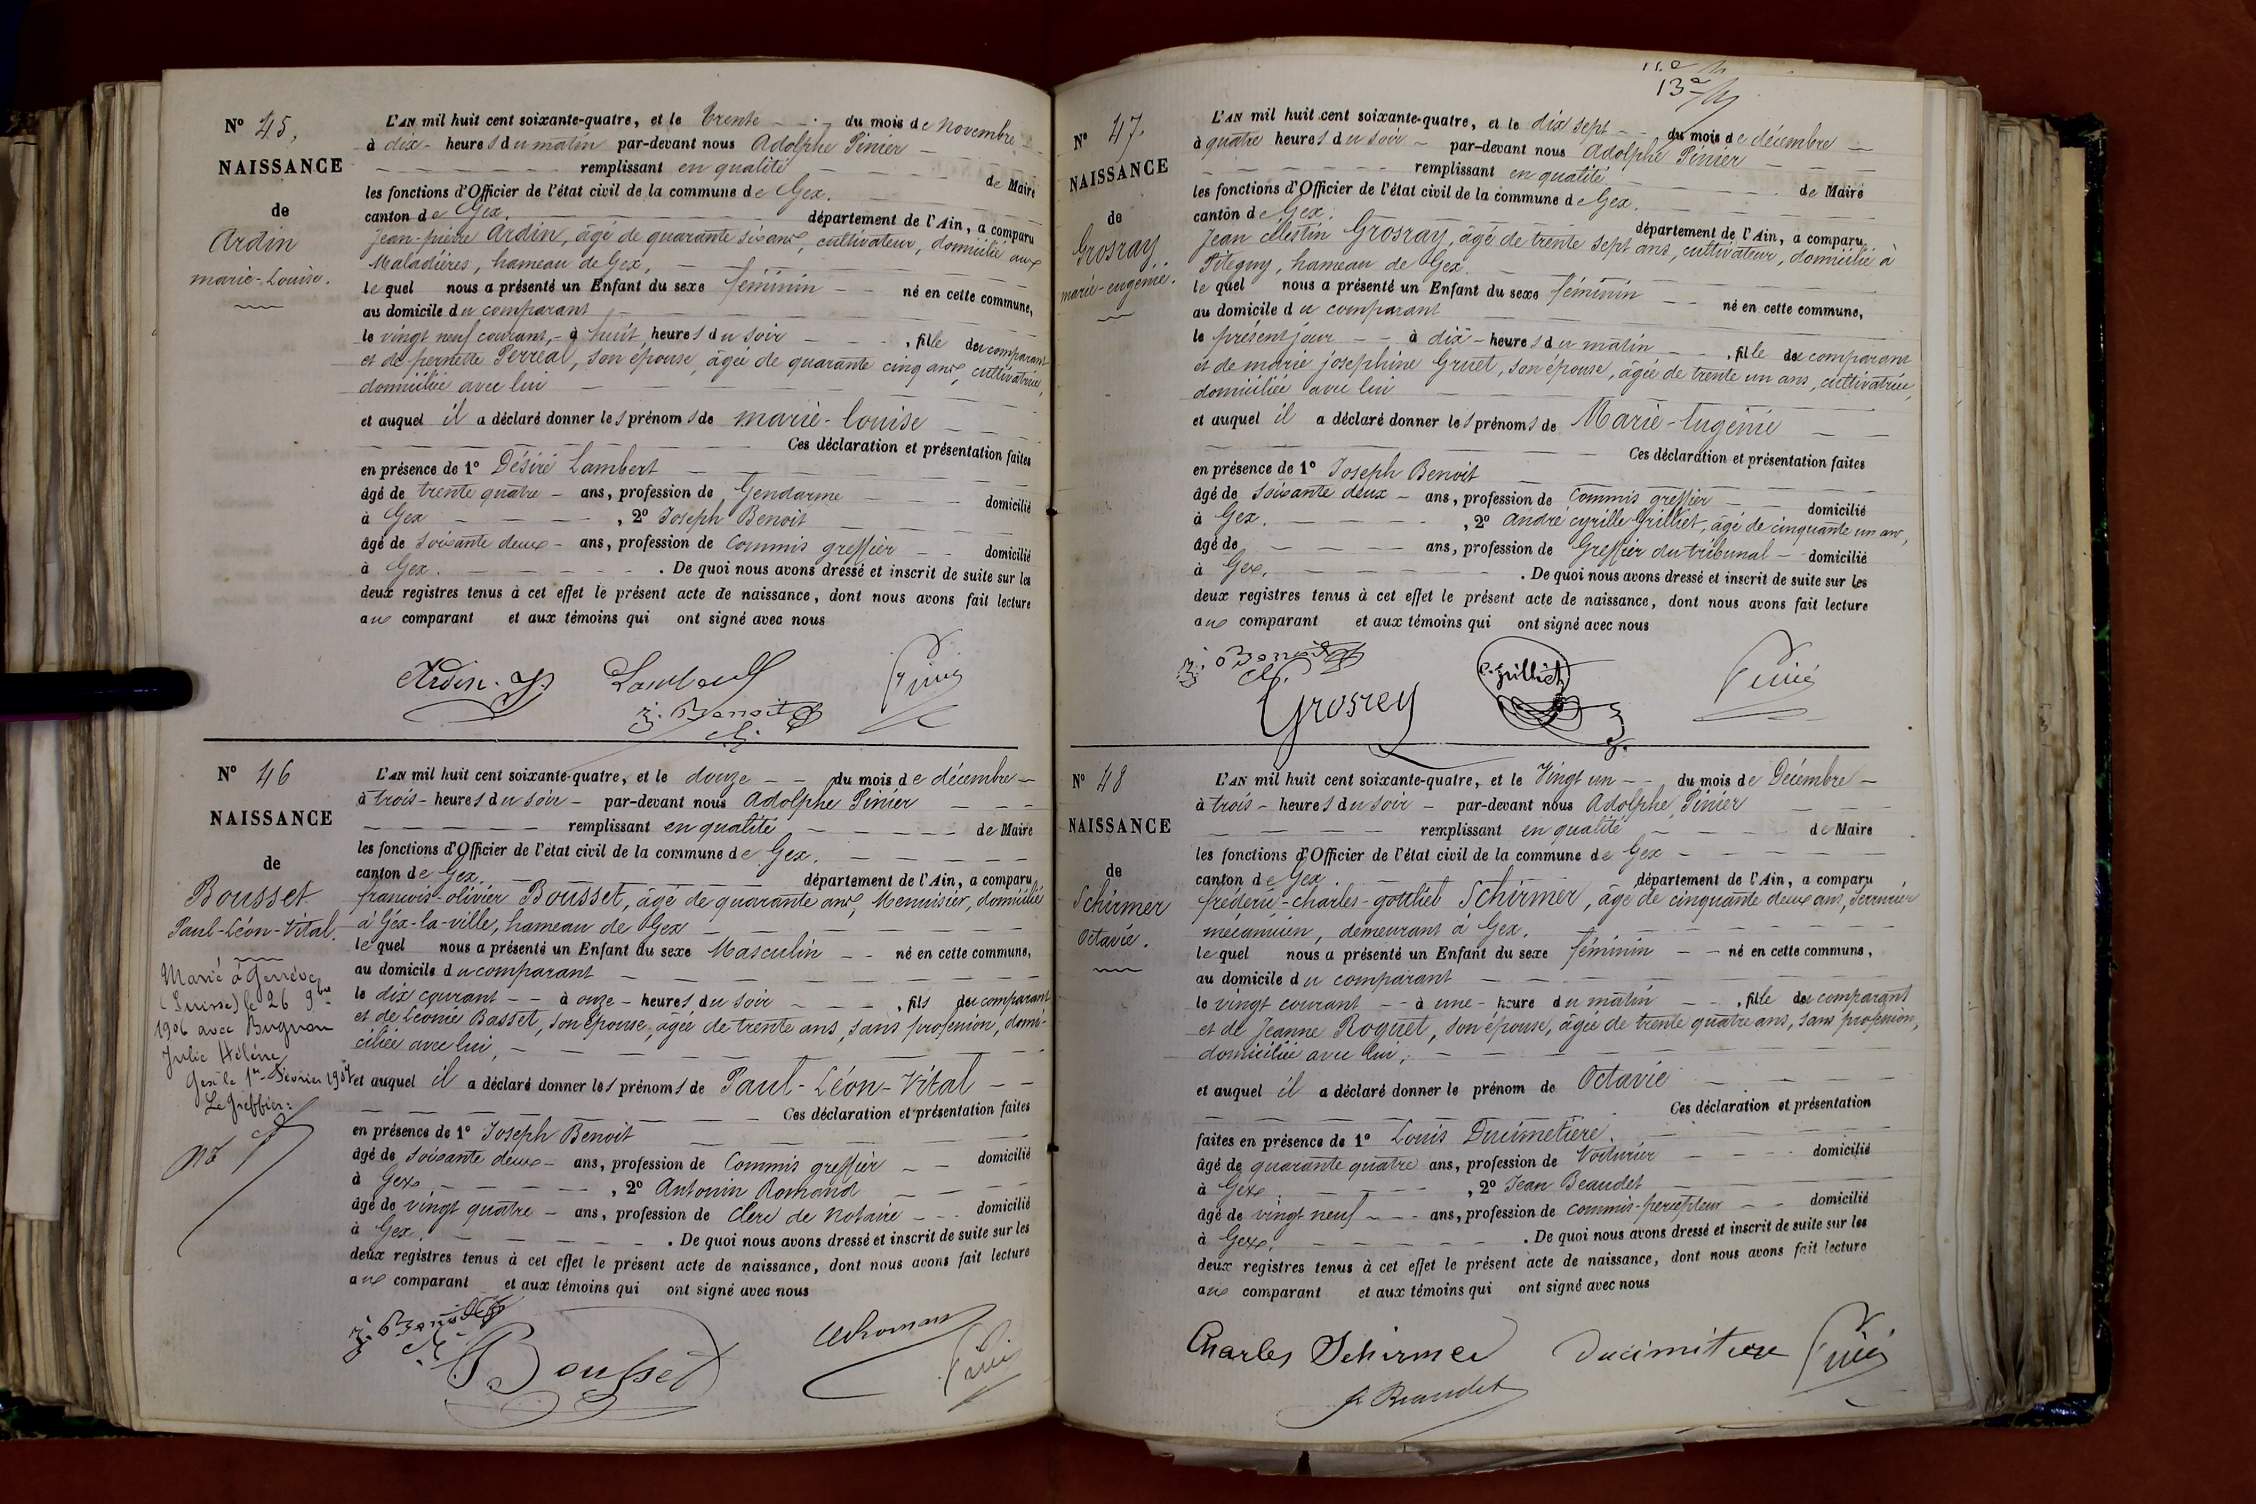 N° 45,
NAISSANCE
de
Ardin
marie-Louise.
L'AN mil huit cent soixante-quatre, et le trente du mois de Novembre
à dix heures du matin par-devant nous Adolphe Pinier
remplissant en qualité de Maire
les fonctions d'Officier de l'état civil de la commune de Gex.
canton de Gex. département de l'Ain, a comparu
Jean-pierre Ardin, âgé de quarante six ans, cultivateur, domicilié aux
Maladières, hameau de Gex,
le quel nous a présenté un Enfant du sexe féminin né en cette commune,
au domicile du comparant
le vingt neuf courant, à huit heures du soir, fille du comparant
et de pernette Perréal, son épouse, âgée de quarante cinq ans, cultivatrice,
domiciliée avec lui
et auquel il a déclaré donner les prénoms de marie-louise
Ces déclaration et présentation faites
en présence de 1° Désiré Lambert
âgé de trente quatre ans, profession de Gendarme domicilié
à Gex, 2° Joseph Benoit
âgé de soixante deux ans, profession de Commis greffier domicilié
à Gex. De quoi nous avons dressé et inscrit de suite sur les
deux registres tenus à cet effet le présent acte de naissance, dont nous avons fait lecture
aux comparant et aux témoins qui ont signé avec nous
Ardin. J. Lambert Pinié
j. Benoit
N° 46
NAISSANCE
de
Bousset
Paul-Léon-Vital.
Marié à Genève
(Suisse) le 26 9bre
1906 avec Bugnon
Julie Hélène
Gex le 1er Février 1907
Le Greffier:
L'AN mil huit cent soixante-quatre, et le douze du mois de décembre
à trois heures du soir par-devant nous Adolphe Pinier
remplissant en qualité de Maire
les fonctions d'Officier de l'état civil de la commune de Gex.
canton de Gex. département de l'Ain, a comparu
françois-olivier Bousset, âgé de quarante ans, Menuisier, domicilié
à Gex-la-ville, hameau de Gex
le quel nous a présenté un Enfant du sexe Masculin né en cette commune,
au domicile du comparant
le dix courant à onze heures du soir, fils du comparant
et de Léonie Basset, son épouse, âgée de trente ans, sans profession, domi-
ciliée avec lui,
et auquel il a déclaré donner les prénoms de Paul-Léon-Vital
Ces déclaration et présentation faites
en présence de 1° Joseph Benoit
âgé de soixante deux ans, profession de Commis greffier domicilié
à Gex, 2° Antonin Romand
âgé de vingt quatre ans, profession de Clerc de Notaire domicilié
à Gex. De quoi nous avons dressé et inscrit de suite sur les
deux registres tenus à cet effet le présent acte de naissance, dont nous avons fait lecture
aux comparant et aux témoins qui ont signé avec nous
j. Benoit Bousset Pinié
13e
N° 47.
NAISSANCE
de
Grosray
marie-eugénie.
L'AN mil huit cent soixante-quatre, et le dix sept du mois de décembre
à quatre heures du soir par-devant nous Adolphe Pinier
remplissant en qualité de Maire
les fonctions d'Officier de l'état civil de la commune de Gex.
canton de Gex. département de l'Ain, a comparu
Jean célestin Grosray, âgé de trente sept ans, cultivateur, domicilié à
Pitegny, hameau de Gex.
le quel nous a présenté un Enfant du sexe féminin né en cette commune,
au domicile du comparant
le présent jour à dix heures du matin, fille du comparant
et de marie josephine Gruet, son épouse, âgée de trente un ans, cultivatrice,
domiciliée avec lui
et auquel il a déclaré donner les prénoms de Marie-Eugénie
Ces déclaration et présentation faites
en présence de 1° Joseph Benoit
âgé de soixante deux ans, profession de Commis greffier domicilié
à Gex., 2° André cyrille Grilliet, âgé de cinquante un ans,
âgé de ans, profession de Greffier du tribunal domicilié
à Gex. De quoi nous avons dressé et inscrit de suite sur les
deux registres tenus à cet effet le présent acte de naissance, dont nous avons fait lecture
aux comparant et aux témoins qui ont signé avec nous
j. Benoit
Grosrey C. Grilliet Pinié
N° 48
NAISSANCE
de
Schirmer
Octavie.
L'AN mil huit cent soixante-quatre, et le Vingt un du mois de Décembre
à trois heures du soir par-devant nous Adolphe Pinier
remplissant en qualité de Maire
les fonctions d'Officier de l'état civil de la commune de Gex
canton de Gex. département de l'Ain, a comparu
fréderic-charles-gottlieb Schirmer, âgé de cinquante deux ans, Serrurier
mécanicien, demeurant à Gex.
le quel nous a présenté un Enfant du sexe féminin né en cette commune,
au domicile du comparant
le vingt courant à une heure du matin, fille du comparant
et de Jeanne Roquet, son épouse, âgée de trente quatre ans, sans profession,
domiciliée avec lui,
et auquel il a déclaré donner le prénom de Octavie
Ces déclaration et présentation
faites en présence de 1° Louis Ducimetière.
âgé de quarante quatre ans, profession de Voiturier domicilié
à Gex, 2° Jean Beaudet
âgé de vingt neuf ans, profession de commis-percepteur domicilié
à Gex. De quoi nous avons dressé et inscrit de suite sur les
deux registres tenus à cet effet le présent acte de naissance, dont nous avons fait lecture
aux comparant et aux témoins qui ont signé avec nous
Charles Schirmer Ducimetiere Pinié
J. Beaudet